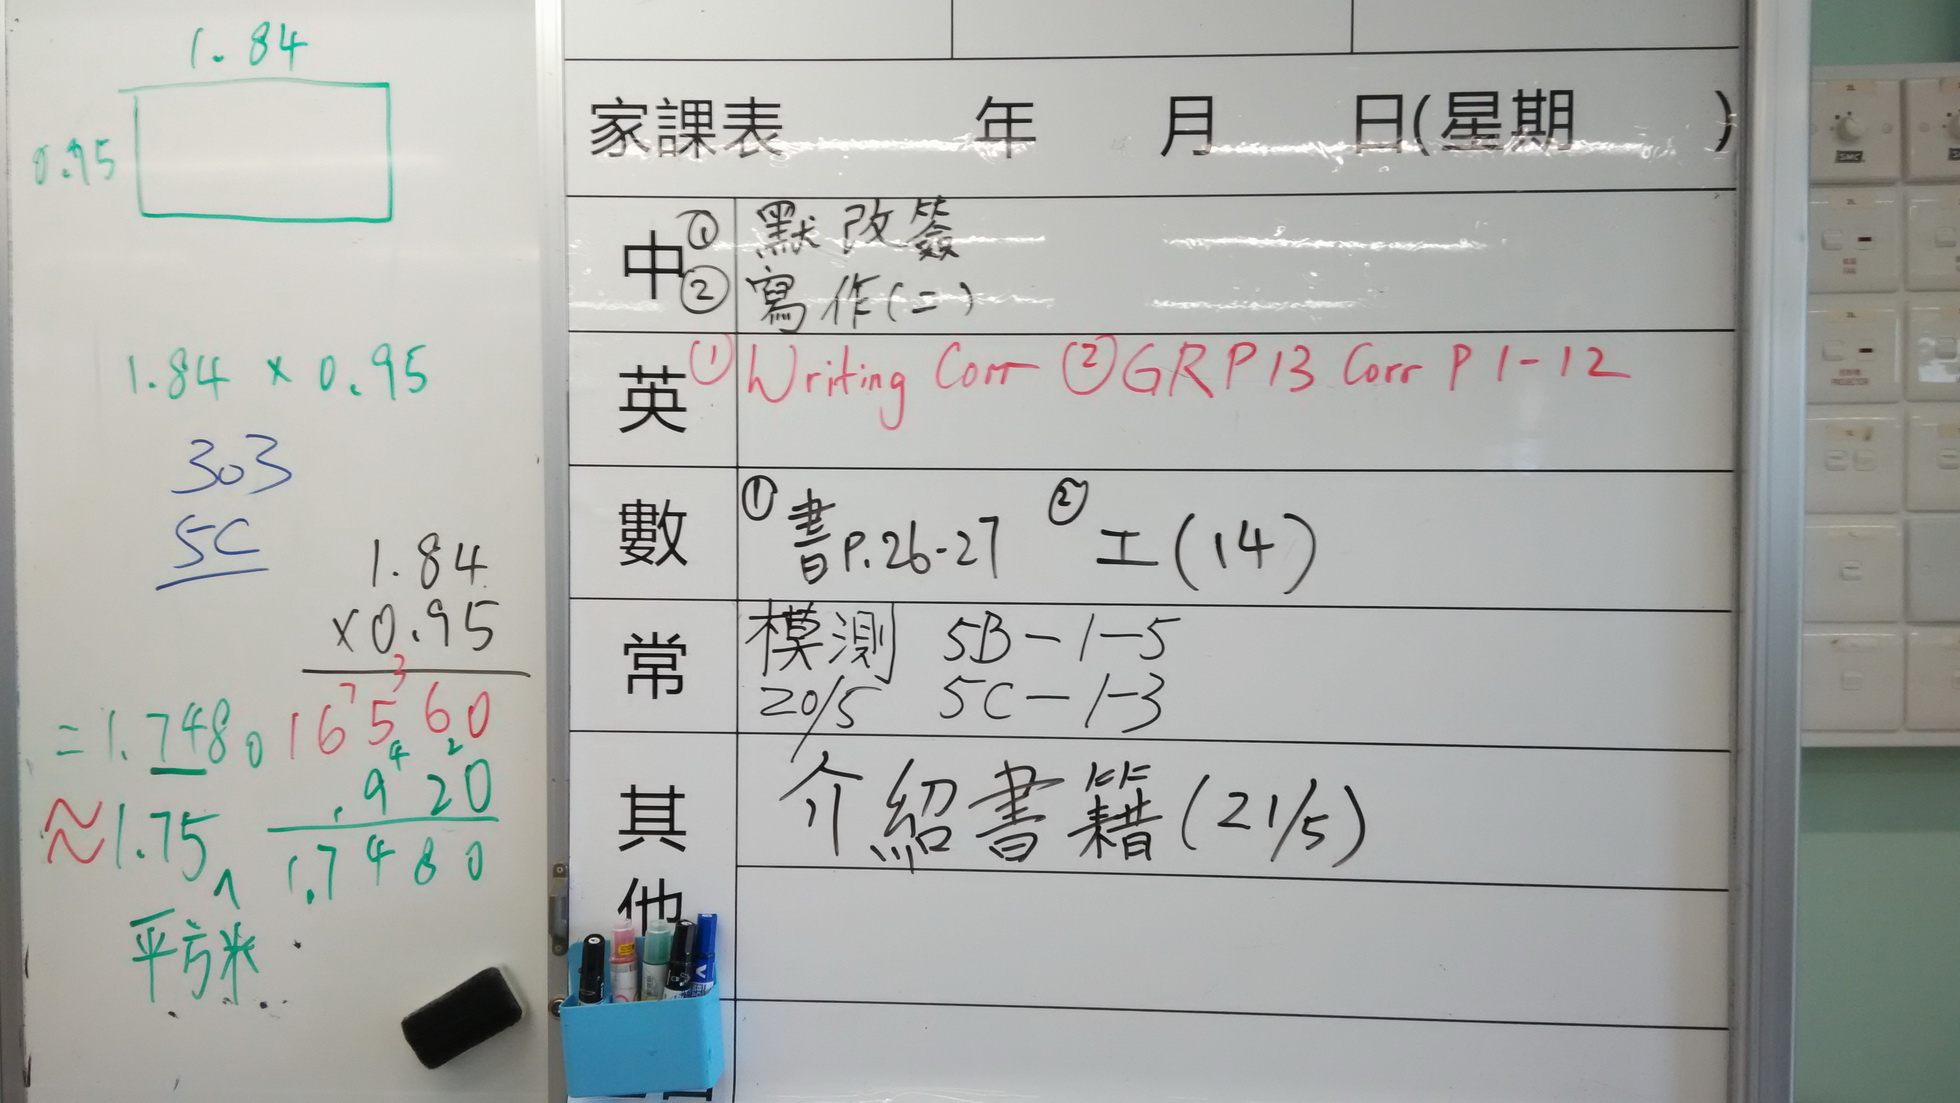 1.84
0.95
1.84 × 0.95
303
5C
1.84
×0.95
16560
.920
1.7480
=1.7480
≈1.75
平方米
家課表 年 月 日(星期 )
中 ① 默改簽
② 寫作(二)
英 ① Writing Corr ② GR P13 Corr P 1-12
數 ① 書P.26-27 ② 工(14)
常 模測 5B-1-5
20/5 5C-1-3
其他 介紹書籍(21/5)